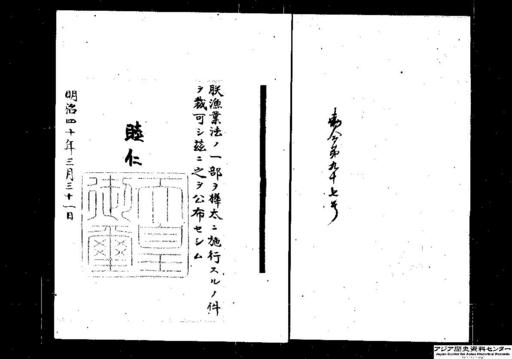 勅令第九十七号
朕漁業法ノ一部ヲ樺太ニ施行スルノ件
ヲ裁可シ茲ニ之ヲ公布セシム
睦仁
天皇
御璽
明治四十年三月三十一日
アジア歴史資料センター
Japan Center for Asian Historical Records